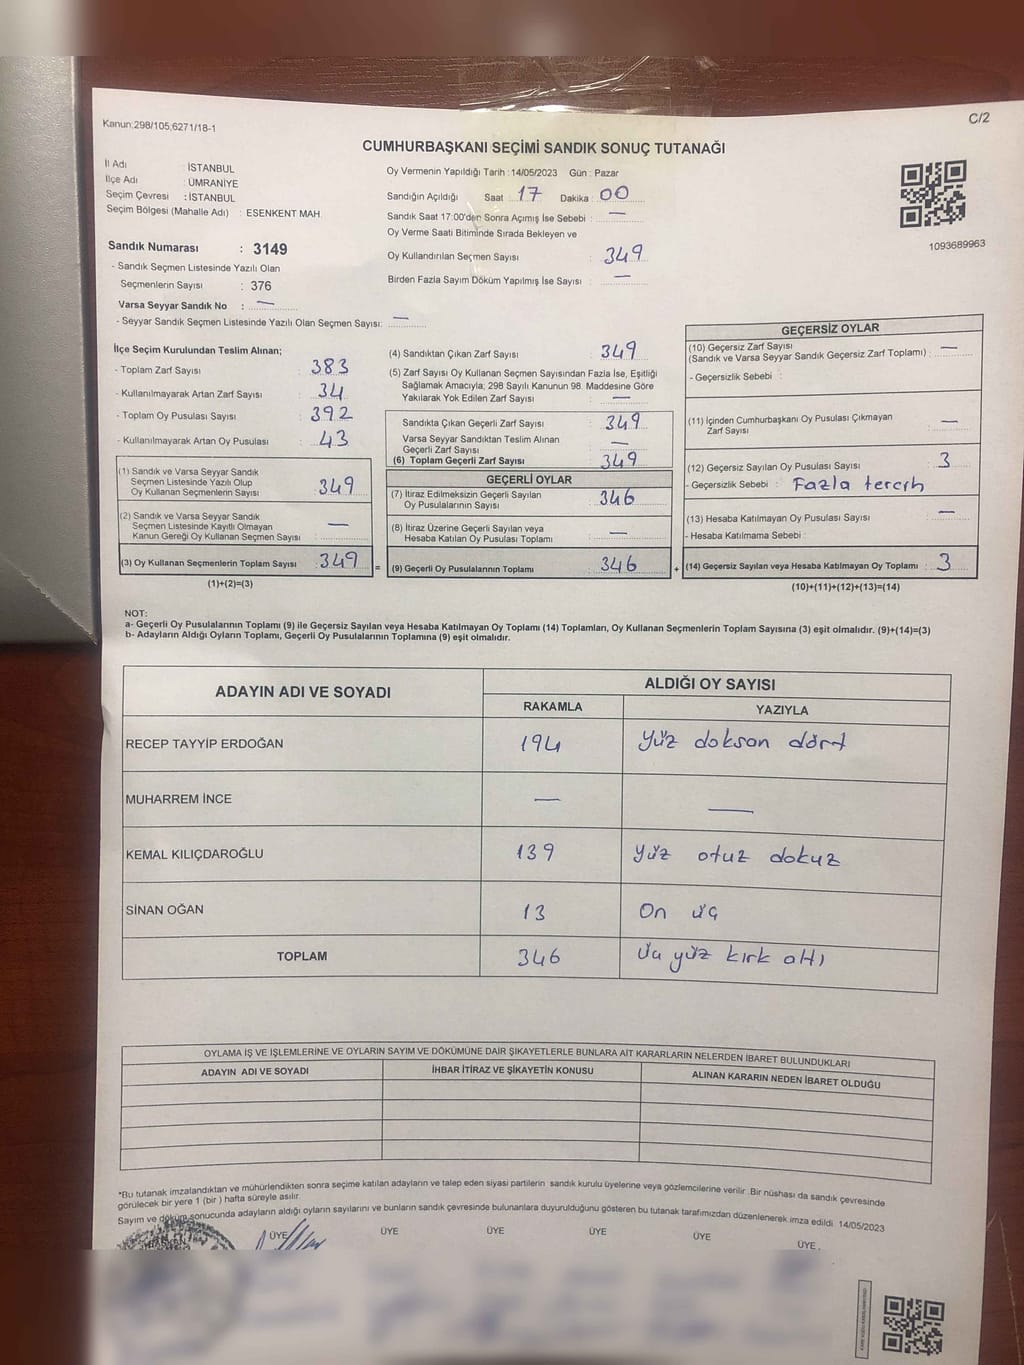 Kanun:298/105,6271/18-1
C/2
CUMHURBAŞKANI SEÇİMİ SANDIK SONUÇ TUTANAĞI
İl Adı : İSTANBUL
İlçe Adı : ÜMRANİYE
Seçim Çevresi : İSTANBUL
Seçim Bölgesi (Mahalle Adı) : ESENKENT MAH.
Sandık Numarası : 3149
- Sandık Seçmen Listesinde Yazılı Olan
Seçmenlerin Sayısı : 376
Varsa Seyyar Sandık No : —
- Seyyar Sandık Seçmen Listesinde Yazılı Olan Seçmen Sayısı: —
Oy Vermenin Yapıldığı Tarih : 14/05/2023 Gün : Pazar
Sandığın Açıldığı Saat 17 Dakika : 00
Sandık Saat 17:00'den Sonra Açımış İse Sebebi : —
Oy Verme Saati Bitiminde Sırada Bekleyen ve
Oy Kullandırılan Seçmen Sayısı : 349
Birden Fazla Sayım Döküm Yapılmış İse Sayısı : —
1093689963
İlçe Seçim Kurulundan Teslim Alınan;
- Toplam Zarf Sayısı : 383
- Kullanılmayarak Artan Zarf Sayısı : 34
- Toplam Oy Pusulası Sayısı : 392
- Kullanılmayarak Artan Oy Pusulası : 43
(1) Sandık ve Varsa Seyyar Sandık
Seçmen Listesinde Yazılı Olup
Oy Kullanan Seçmenlerin Sayısı : 349
(2) Sandık ve Varsa Seyyar Sandık
Seçmen Listesinde Kayıtlı Olmayan
Kanun Gereği Oy Kullanan Seçmen Sayısı : —
(3) Oy Kullanan Seçmenlerin Toplam Sayısı : 349
(1)+(2)=(3)
(4) Sandıktan Çıkan Zarf Sayısı : 349
(5) Zarf Sayısı Oy Kullanan Seçmen Sayısından Fazla İse, Eşitliği
Sağlamak Amacıyla; 298 Sayılı Kanunun 98. Maddesine Göre
Yakılarak Yok Edilen Zarf Sayısı : —
Sandıkta Çıkan Geçerli Zarf Sayısı : 349
Varsa Seyyar Sandıktan Teslim Alınan
Geçerli Zarf Sayısı : —
(6) Toplam Geçerli Zarf Sayısı : 349
GEÇERLİ OYLAR
(7) İtiraz Edilmeksizin Geçerli Sayılan
Oy Pusulalarının Sayısı : 346
(8) İtiraz Üzerine Geçerli Sayılan veya
Hesaba Katılan Oy Pusulası Toplamı : —
= (9) Geçerli Oy Pusulalarının Toplamı : 346
GEÇERSİZ OYLAR
(10) Geçersiz Zarf Sayısı
(Sandık ve Varsa Seyyar Sandık Geçersiz Zarf Toplamı) : —
- Geçersizlik Sebebi :
(11) İçinden Cumhurbaşkanı Oy Pusulası Çıkmayan
Zarf Sayısı : —
(12) Geçersiz Sayılan Oy Pusulası Sayısı : 3
- Geçersizlik Sebebi : Fazla tercih
(13) Hesaba Katılmayan Oy Pusulası Sayısı : —
- Hesaba Katılmama Sebebi :
+ (14) Geçersiz Sayılan veya Hesaba Katılmayan Oy Toplamı : 3
(10)+(11)+(12)+(13)=(14)
NOT:
a- Geçerli Oy Pusulalarının Toplamı (9) ile Geçersiz Sayılan veya Hesaba Katılmayan Oy Toplamı (14) Toplamları, Oy Kullanan Seçmenlerin Toplam Sayısına (3) eşit olmalıdır. (9)+(14)=(3)
b- Adayların Aldığı Oyların Toplamı, Geçerli Oy Pusulalarının Toplamına (9) eşit olmalıdır.
ADAYIN ADI VE SOYADI
ALDIĞI OY SAYISI
RAKAMLA YAZIYLA
RECEP TAYYİP ERDOĞAN 194 Yüz doksan dört
MUHARREM İNCE — —
KEMAL KILIÇDAROĞLU 139 Yüz otuz dokuz
SİNAN OĞAN 13 On üç
TOPLAM 346 Üç yüz kırk altı
OYLAMA İŞ VE İŞLEMLERİNE VE OYLARIN SAYIM VE DÖKÜMÜNE DAİR ŞİKAYETLERLE BUNLARA AİT KARARLARIN NELERDEN İBARET BULUNDUKLARI
ADAYIN ADI VE SOYADI İHBAR İTİRAZ VE ŞİKAYETİN KONUSU ALINAN KARARIN NEDEN İBARET OLDUĞU
*Bu tutanak imzalandıktan ve mühürlendikten sonra seçime katılan adayların ve talep eden siyasi partilerin sandık kurulu üyelerine veya gözlemcilerine verilir. Bir nüshası da sandık çevresinde
görülecek bir yere 1 (bir ) hafta süreyle asılır.
Sayım ve döküm sonucunda adayların aldığı oyların sayılarını ve bunların sandık çevresinde bulunanlara duyurulduğunu gösteren bu tutanak tarafımızdan düzenlenerek imza edildi. 14/05/2023
BAŞKAN ÜYE ÜYE ÜYE ÜYE ÜYE ÜYE